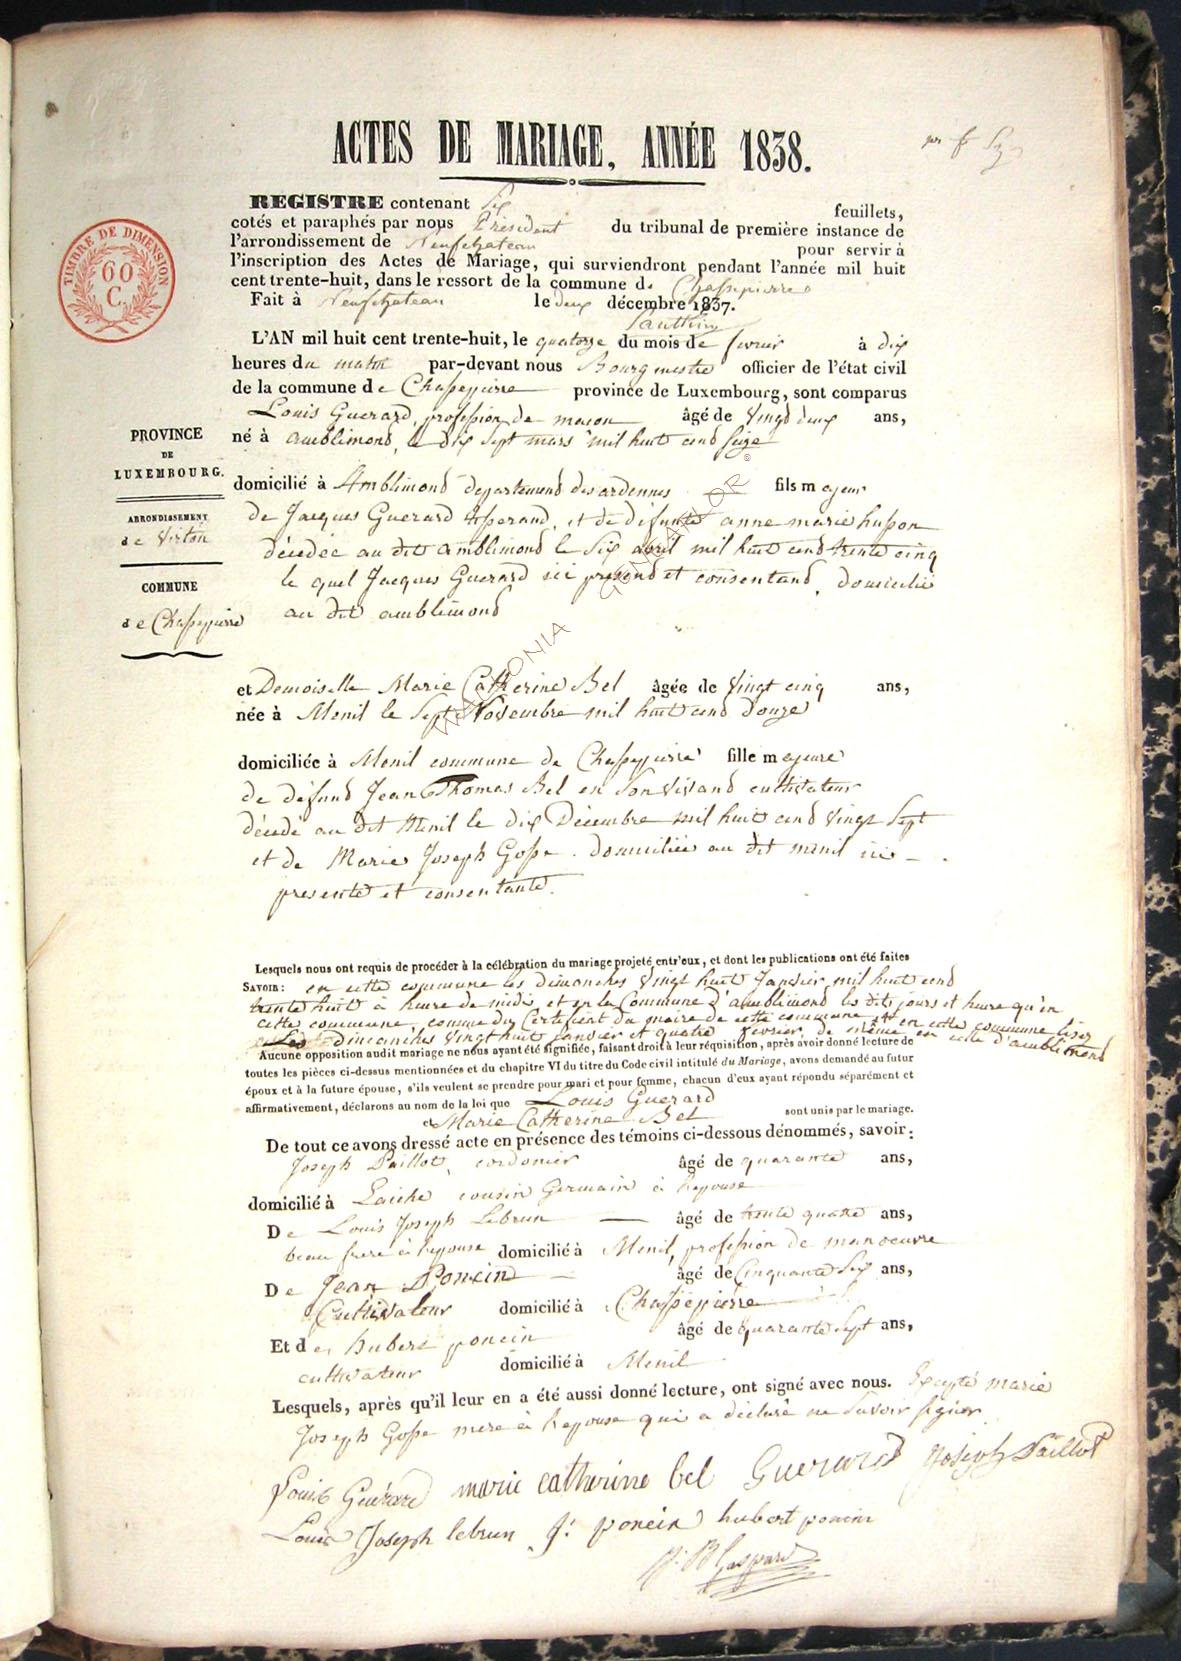 ACTES DE MARIAGE, ANNÉE 1838.
REGISTRE contenant Six feuillets,
cotés et paraphés par nous Président du tribunal de première instance de
l'arrondissement de Neufchateau pour servir à
l'inscription des Actes de Mariage, qui surviendront pendant l'année mil huit
cent trente-huit, dans le ressort de la commune de Chassepierre
Fait à Neufchateau le deux décembre 1837.
TIMBRE DE DIMENSION
60
C.
L'AN mil huit cent trente-huit, le quatorze du mois de fevrier à dix
heures du matin par-devant nous Bourgmestre officier de l'état civil
de la commune de Chassepierre province de Luxembourg, sont comparus
Louis Guerard, profession de macon âgé de vingt deux ans,
né à amblimond, le dix sept mars mil huit cend seize
PROVINCE
DE
LUXEMBOURG.
ARRONDISSEMENT
de Virton
COMMUNE
de Chassepierre
domicilié à Amblimond departemend des ardennes fils majeur
de Jacques Guerard tisserand, et de défunte anne marie husson
décédée au dit amblimond le six abril mil huit cend trente cinq
le quel Jacques Guerard ici presend et consentand, domicilié
au dit amblimond
WALLONIA GONGAELOR ©
et Demoiselle Marie Catherine Bel âgée de vingt cinq ans,
née à Menil le Sept Novembre mil huit cend douze
domiciliée à Menil commune de Chassepierre fille majeure
de défund Jean Thomas Bel en Son vivand cultivateur
décédé au dit Menil le dix Décembre mil huit cend vingt Sept
et de Marie Joseph Gosse domiciliée au dit menil ici
presente et consentante.
Lesquels nous ont requis de procéder à la célébration du mariage projeté entr'eux, et dont les publications ont été faites
Savoir: en cette commune les dimanches vingt huit Janvier mil huit cend
trente huit à heure de midi et en la Commune d'amblimond les dits jours et heure qu'en
cette commune, comme du Certificat du maire de cette commune
Les dimanches vingt huit janvier et quatre fevrier, de même en cette commune
en celle d'amblimond
Aucune opposition audit mariage ne nous ayant été signifiée, faisant droit à leur réquisition, après avoir donné lecture de
toutes les pièces ci-dessus mentionnées et du chapitre VI du titre du Code civil intitulé du Mariage, avons demandé au futur
époux et à la future épouse, s'ils veulent se prendre pour mari et pour femme, chacun d'eux ayant répondu séparément et
affirmativement, déclarons au nom de la loi que Louis Guerard
et Marie Catherine Bel sont unis par le mariage.
De tout ce avons dressé acte en présence des témoins ci-dessous dénommés, savoir:
Joseph Paillot, cordonier âgé de quarante ans,
domicilié à Laiche cousin Germain à l'epouse
De Louis Joseph Lebrun âgé de trente quatre ans,
beau frere à l'epouse domicilié à Menil, profession de manoeuvre
De Jean Poncin âgé de Cinquante Six ans,
Cultivateur domicilié à Chassepierre
Et de hubert poncin âgé de quarante Sept ans,
cultivateur domicilié à Menil
Lesquels, après qu'il leur en a été aussi donné lecture, ont signé avec nous. Excepté marie
Joseph Gosse mere à l'epouse qui a déclaré ne Savoir signer
Louis Guérard marie catherine bel Guerard Joseph Paillot
Louis Joseph lebrun J: poncin hubert poncin
Gaspard